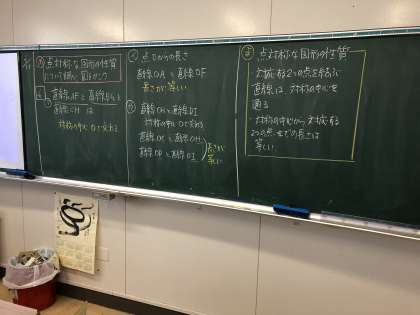 点対称な図形の性質
について調べ
直線AFと直線BGと
直線CHは
対称の中心Oで交わる
点Oからの長さ
直線OAと直線OF
長さが等しい
直線DIと直線
対称の中心Oで交わる
直線OCと直線OH
直線ODと直線OI
長さが
等しい
点対称な図形の性質
・対応する2つの点を結ぶ
直線は対称の中心を
通る
・対称の中心から対応する
2つの点までの長さは
等しい